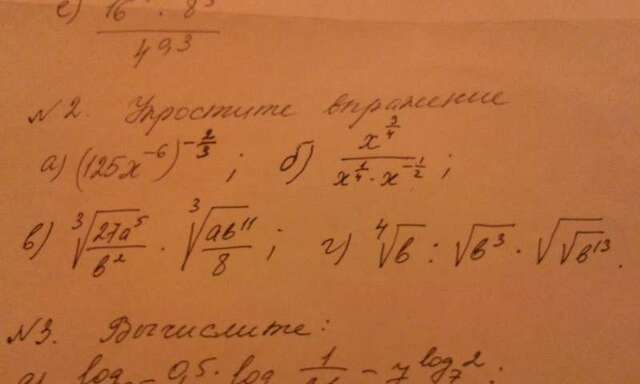 е) 16 · 8
4^0,3
№2. Упростите выражение
а) (125x^-6)^-2/3 ; б) x^3/4 / (x^1/4 · x^-1/2) ;
в) ∛(27a^5/b^2) · ∛(ab^11/8) ; г) ∜b : √b^3 · √√b^13 .
№3. Вычислите:
log 0,5 · log 1 − 7^log_7 2 ;